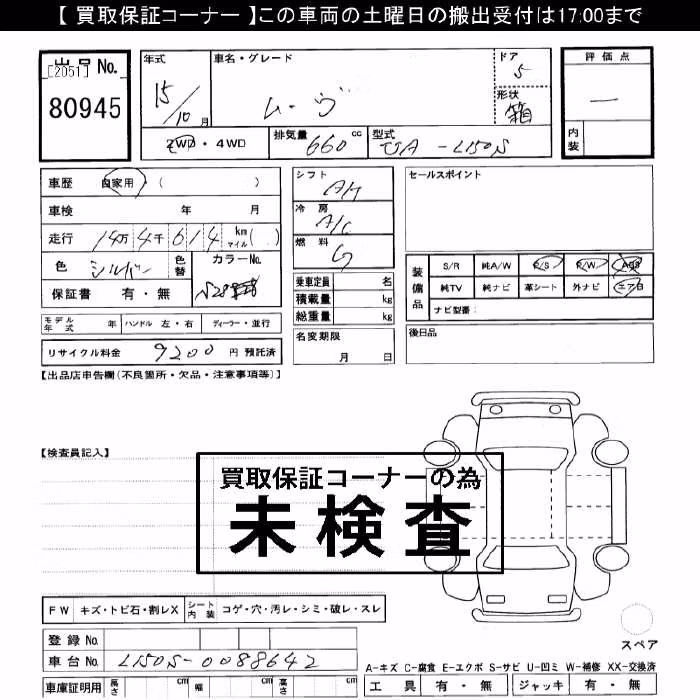 【 買取保証コーナー 】この車両の土曜日の搬出受付は17:00まで
出品 No.
[2051]
80945
年式
15/10 月
車名・グレード
ムーヴ
ドア
5
形状
箱
評価点
—
内装
2WD・4WD
排気量 660 cc
型式 UA-L150S
車歴 自家用・( )
車検 年 月
走行 14万 4千 6 1 4 km マイル ( )
色 シルバー
色替
カラーNo.
保証書 有・無
S28
シフト
AT
冷房
A/C
燃料
G
乗車定員 名
積載量 kg
総重量 kg
セールスポイント
装備品
S/R 純A/W P/S P/W ABS
純TV 純ナビ 革シート 外ナビ エアB
ナビ型番:
モデル年式 年 ハンドル 左・右 ディーラー・並行
名変期限
月 日
後日品
リサイクル料金 9200 円 預託済
【出品店申告欄(不良箇所・欠品・注意事項等)】
【検査員記入】
買取保証コーナーの為
未検査
FW キズ・トビ石・割レX シート内装 コゲ・穴・汚レ・シミ・破レ・スレ
登録 No.
車台 No. L150S-0088642
車庫証明用 長さ cm 幅 cm 高さ cm
スペア
A-キズ C-腐食 E-エクボ S-サビ U-凹ミ W-補修 XX-交換済
工具 有・無 ジャッキ 有・無